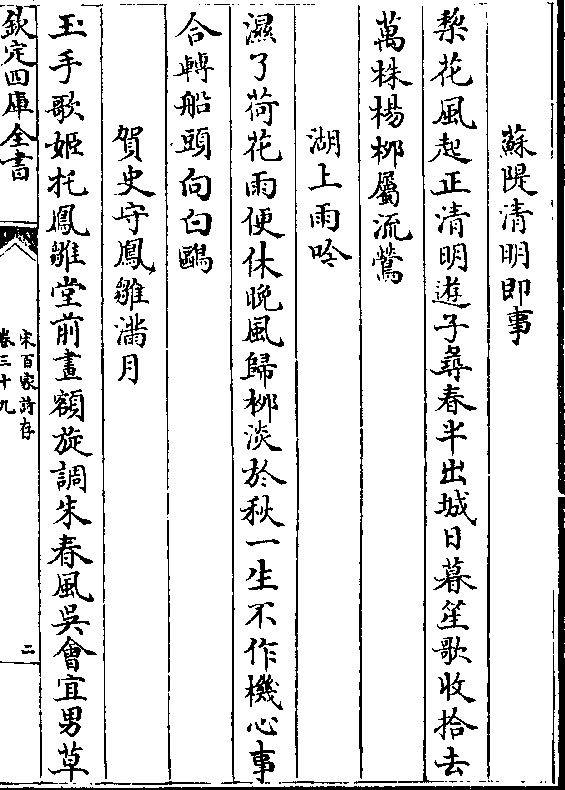 蘇隄清明即事
棃花風起正清明遊子尋春半出城日暮笙歌收拾去
萬株楊栁屬流鶯
湖上雨吟
濕了荷花雨便休晩風歸栁淡於秋一生不作機心事
合轉船頭向白鷗
賀史守鳳雛滿月
玉手歌姬托鳳雛堂前畫額旋調朱春風吳會宜男草
欽定四庫全書
宋百家詩存
卷三十九
二